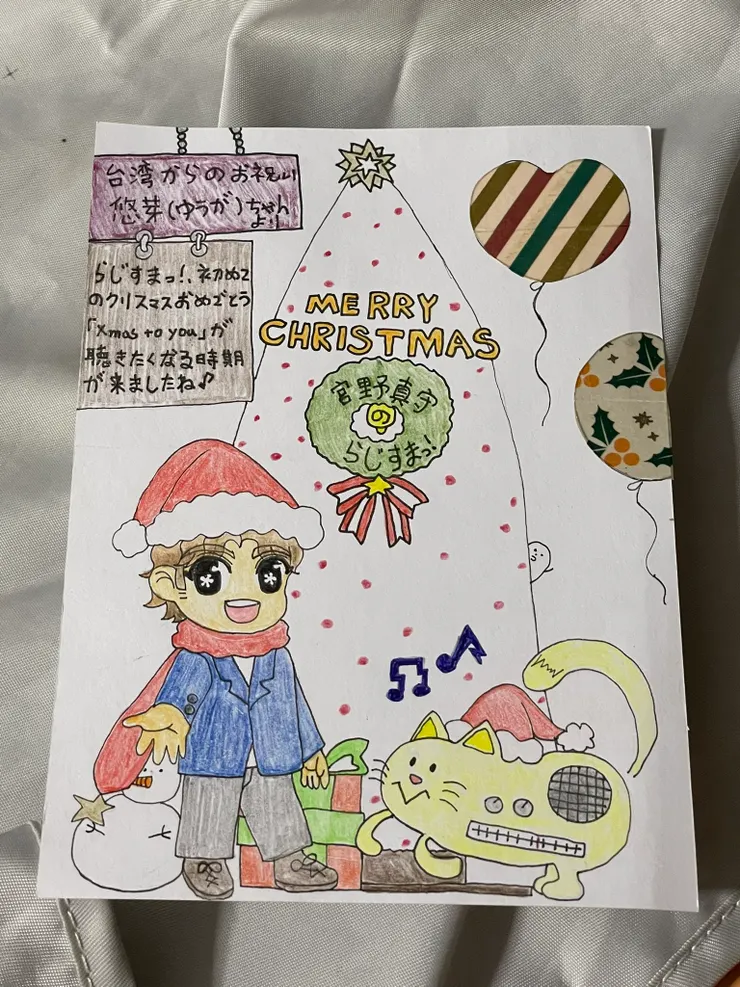 台湾からのお祝い
悠芽(ゆうが)ちゃん
より
らじすまっ!、初めて
のクリスマスおめでとう
「Xmas to you」が
聴きたくなる時期
が来ましたね♪
MERRY
CHRISTMAS
宮野真守
の
らじすまっ!